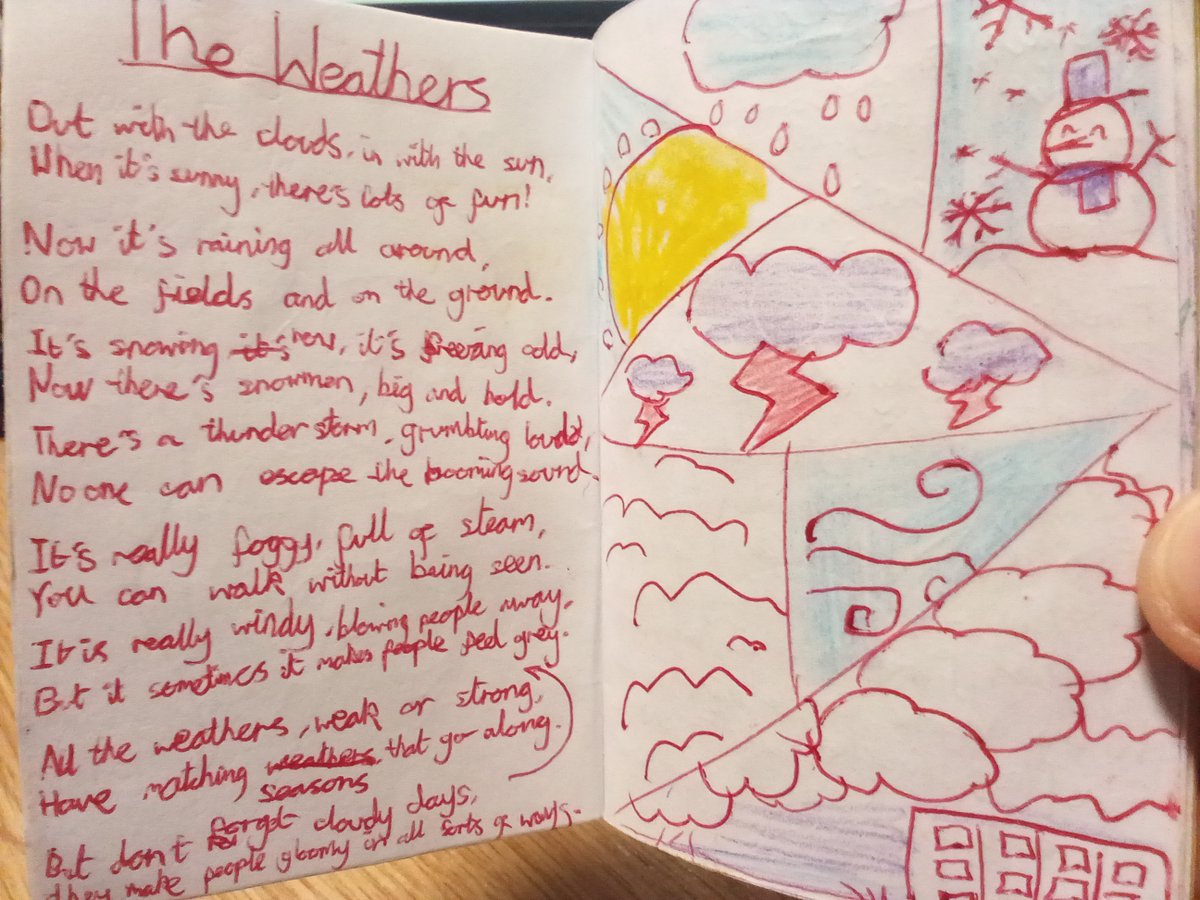 The Weathers
Out with the clouds, in with the sun,
When it's sunny, there's lots of fun!
Now it's raining all around,
On the fields and on the ground.
It's snowing it's now, it's freezing cold,
Now there's snowmen, big and bold.
There's a thunder storm, grumbling loud,
No one can escape the booming sound.
It's really foggy, full of steam,
You can walk without being seen.
It is really windy, blowing people away,
But it sometimes it makes people feel grey.
All the weathers, weak or strong,
Have matching weathers that go along.
seasons
But don't forget cloudy days,
they make people gloomy in all sorts of ways.